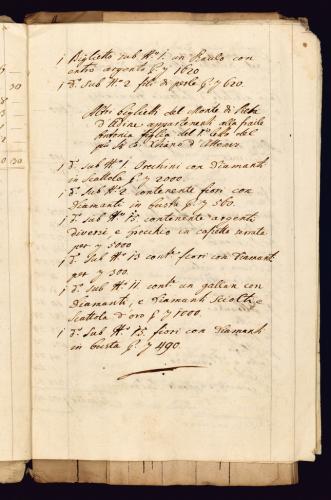 1 Biglietto sub N.º 1. un Baulo con
entro argento p. 7 1620
1 d.º Sub N.º 2 fili di perle p. 7 620.
Altri biglietti del Monte di Pietà
d'Udine appartenenti alla
Antonia figlia del q.m del
1 d.º Sub N.º 1. Orechini con diamanti
in Scattola p. 7 2000.
1 d.º Sub N.º 2 contenente fiori con
Diamanti in busta p. 7 560.
1 d.º sub N.º 15. contenente argenti
diversi e specchio in
per 7 5000
1 d.º Sub N.º 13 cont.e fiori con Diamanti
per 7 300.
1 d.º Sub N.º 11. cont.e un gallan con
diamanti, e diamanti sciolti, e
Scattola d'oro p. 7 1000.
1 d.º Sub N.º 15. fiori con Diamanti
in busta p. 7 490.
30
0
30